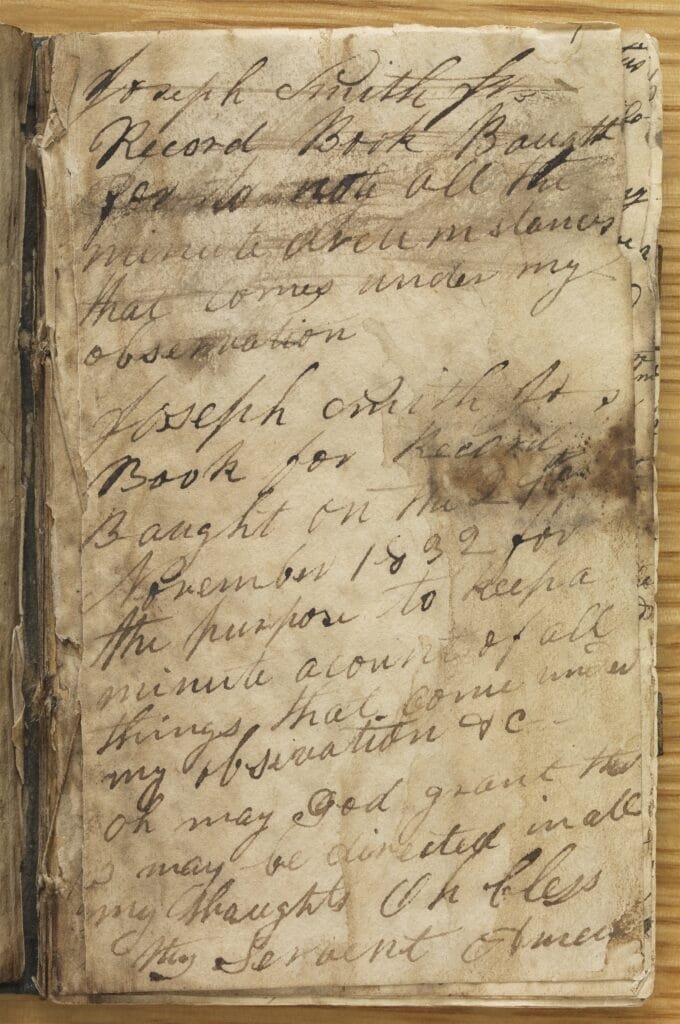 Joseph Smith Jr.
Record Book Baught
for to note all the
minute circumstances
that comes under my
observation
Joseph Smith Jrs
Book for Record
Baught on the 27th
November 1832 for
the purpose to keep a
minute acount of all
things that come under
my obsevation &c
oh may God grant that
I may be directed in all
my thaughts Oh bless
thy Servent Amen